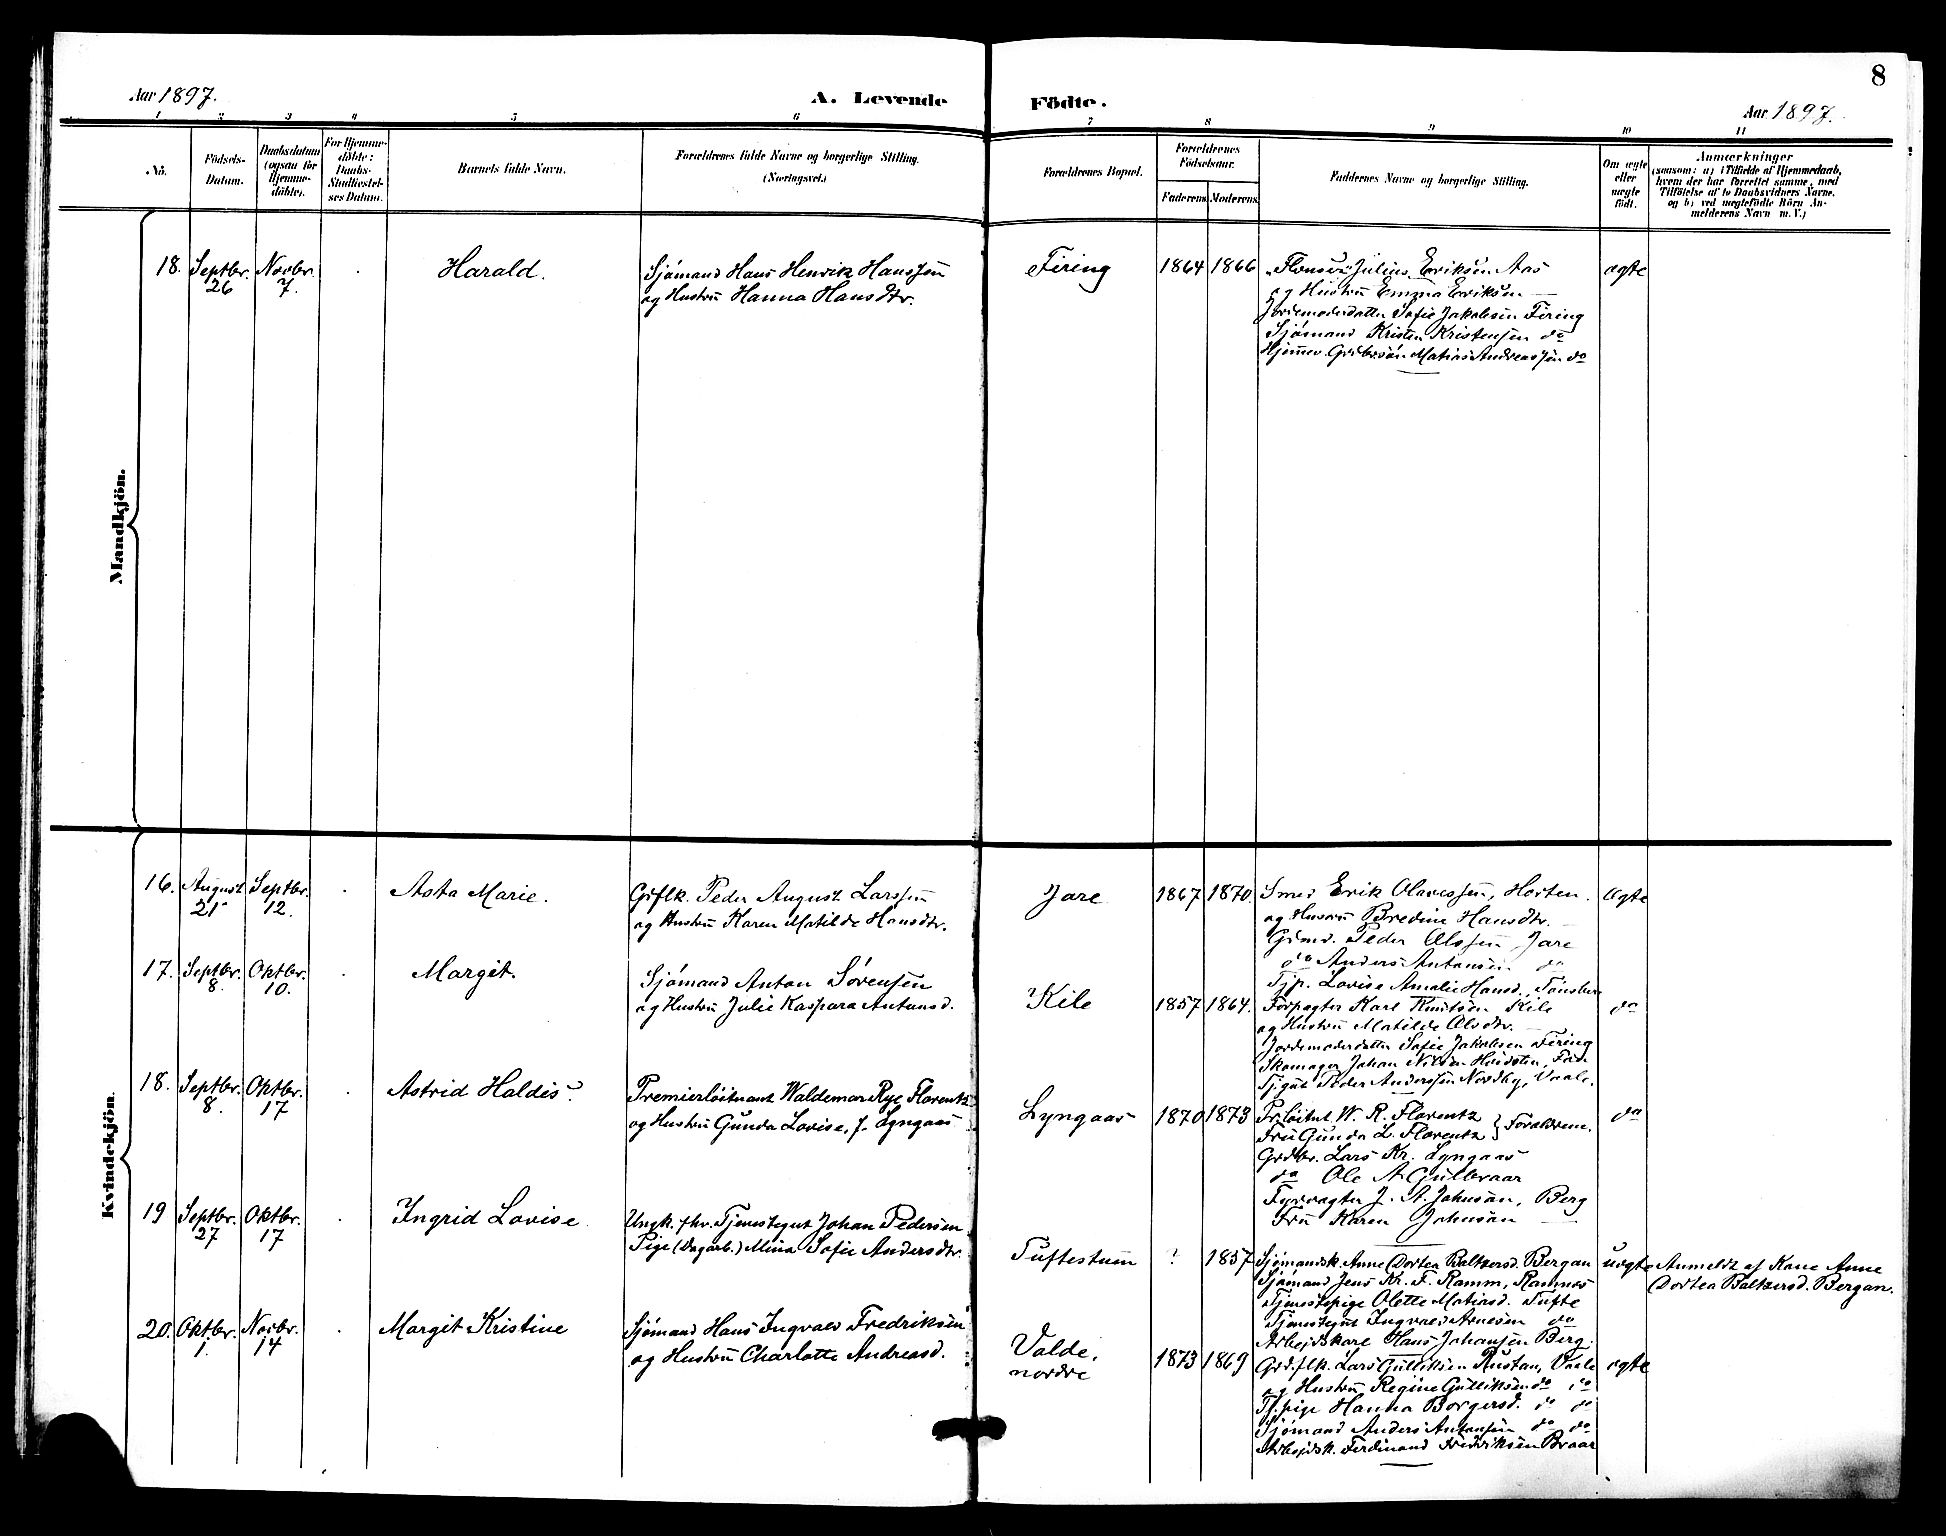 8
Aar 1897.
A. Levende Födte.
Aar 1897.
1 2 3 4 5 6 7 8 9 10 11
No.
Födsels-
Datum.
Daabsdatum
(ogsaa for
Hjemme-
döbte).
For Hjemme-
döbte:
Daabs-
Stadfæstel-
ses Datum.
Barnets fulde Navn.
Forældrenes fulde Navne og borgerlige Stilling.
(Næringsvei.)
Forældrenes Bopæl.
Forældrenes
Födselsaar.
Faderens Moderens
Faddernes Navne og borgerlige Stilling.
Om ægte
eller
uægte
födt.
Anmærkninger
(saasom: a) i Tilfælde af Hjemmedaab,
hvem der har forrettet samme, med
Tilföielse af to Daabsvidners Navne.
og b) ved uægtefödte Börn An-
melderens Navn m. V.)
Mandkjön.
18. Septbr. 26 Novbr. 7. Harald.
Sjömand Hans Henrik Hanssen
og Hustru Hanna Hansdtr.
Firing 1864 1866
Julius Eriksen Aas
og Hustru Emma Eriksen —
Jordemoderdatter Sofie Jakobsen Firing
Sjömand Kristen Kristensen do
Hjemmev. Grdbrsön Matias Andreassen do
ægte
Kvindekjön.
16. August 21 Septbr. 12. Asta Marie.
Grflk. Peder August Larssen
og Hustru Karen Matilde Hansdtr.
Jare 1867 1870
Smed Erik Olavessen, Horten.
og Hustru Bredine Hansdtr. —
Grmd. Peder Olssen Jare
do Anders Antonsen do
Tjp. Lovise Amalie Hansd., Tönsberg
ægte
17. Septbr. 8. Oktbr. 10. Margit.
Sjömand Anton Sörensen
og Hustru Julie Kaspara Antonsd.
Kile 1857 1864.
Forpagter Karl Knutsen Kile
og Hustru Matilde Olsdtr. —
Jordemoderdatter Sofie Jakobsen Firing
Skomager Johan Nilsen
Tjgut Peder Anderssen Nordby, Vaale.
do
18. Septbr. 8. Oktbr. 17 Astrid Haldis.
Premierløitnant Waldemar Rye Florentz
og Hustru Gunda Lovise, f. Lyngaas
Lyngaas 1870 1873
Prløitnt W. R. Florentz
Fru Gunda L. Florentz } Forældrene.
Grdbr. Lars Kr. Lyngaas
do Ole A. Gulbraar
J. A. Johnsen, Berg
Fru Karen Johnsen —
do
19 Septbr. 27 Oktbr. 17 Ingrid Lovise
Ungk. fhv. Tjenestegut Johan Pedersen
Pige (Dagarb.) Mina Sofie Andersdtr.
Tuftestuen ? 1857
Sjömandsk. Anne Dortea Baltzersd. Bergan
Sjömand Jens Kr. F. Ramm, Ramnes
Tjenestepige Olette Matiasd. Tufte
Tjenestegut Ingvald Arnesen do
Arbejdskarl Hans Johansen Berg.
uægte
Anmeldt af Kone Anne
Dortea Baltzersd. Bergan.
20. Oktbr. 1. Novbr. 14 Margit Kristine
Sjömand Hans Ingvald Fredriksen
og Hustru Charlotte Andreasd.
Valde,
nordre
1873 1869
Grd.flk. Lars Gulliksen Rustan, Vaale
og Hustru Regine Gulliksen do do
Tj.pige Hanna Borgersd. do do
Sjömand Anders Antonsen do do
Arbejdsk. Ferdinand Fredriksen Braar
ægte